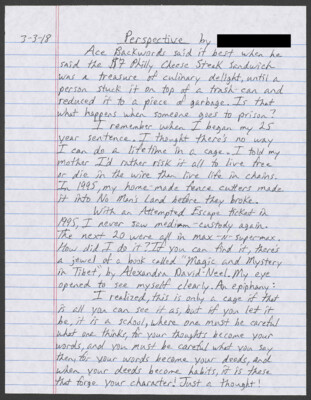 3-3-18 Perspective by
Ace Backwords said it best when he
said the $7 Philly Cheese Steak sandwich
was a treasure of culinary delight, until a
person stuck it on top of a trash can and
reduced it to a piece of garbage. Is that
what happens when someone goes to prison?
I remember when I began my 25
year sentence. I thought there's no way
I can do a lifetime in a cage. I told my
mother I'd rather risk it all to live free
or die in the wire than live life in chains.
In 1995, my home-made fence cutters made
it into No Man's Land before they broke.
With an Attempted Escape ticket in
1995, I never saw medium-custody again.
The next 20 were all in max-n-super-max.
How did I do it? If you can find it, there's
a jewel of a book called "Magic and Mystery
in Tibet", by Alexandra David-Neel. My eye
opened to see myself clearly. An epiphany:
I realized, this is only a cage if that
is all you can see it as, but if you let it
be, it is a school, where one must be careful
what one thinks, for your thoughts become your
words, and you must be careful what you say
then, for your words become your deeds, and
when your deeds become habits, it is these
that forge your character! Just a thought!